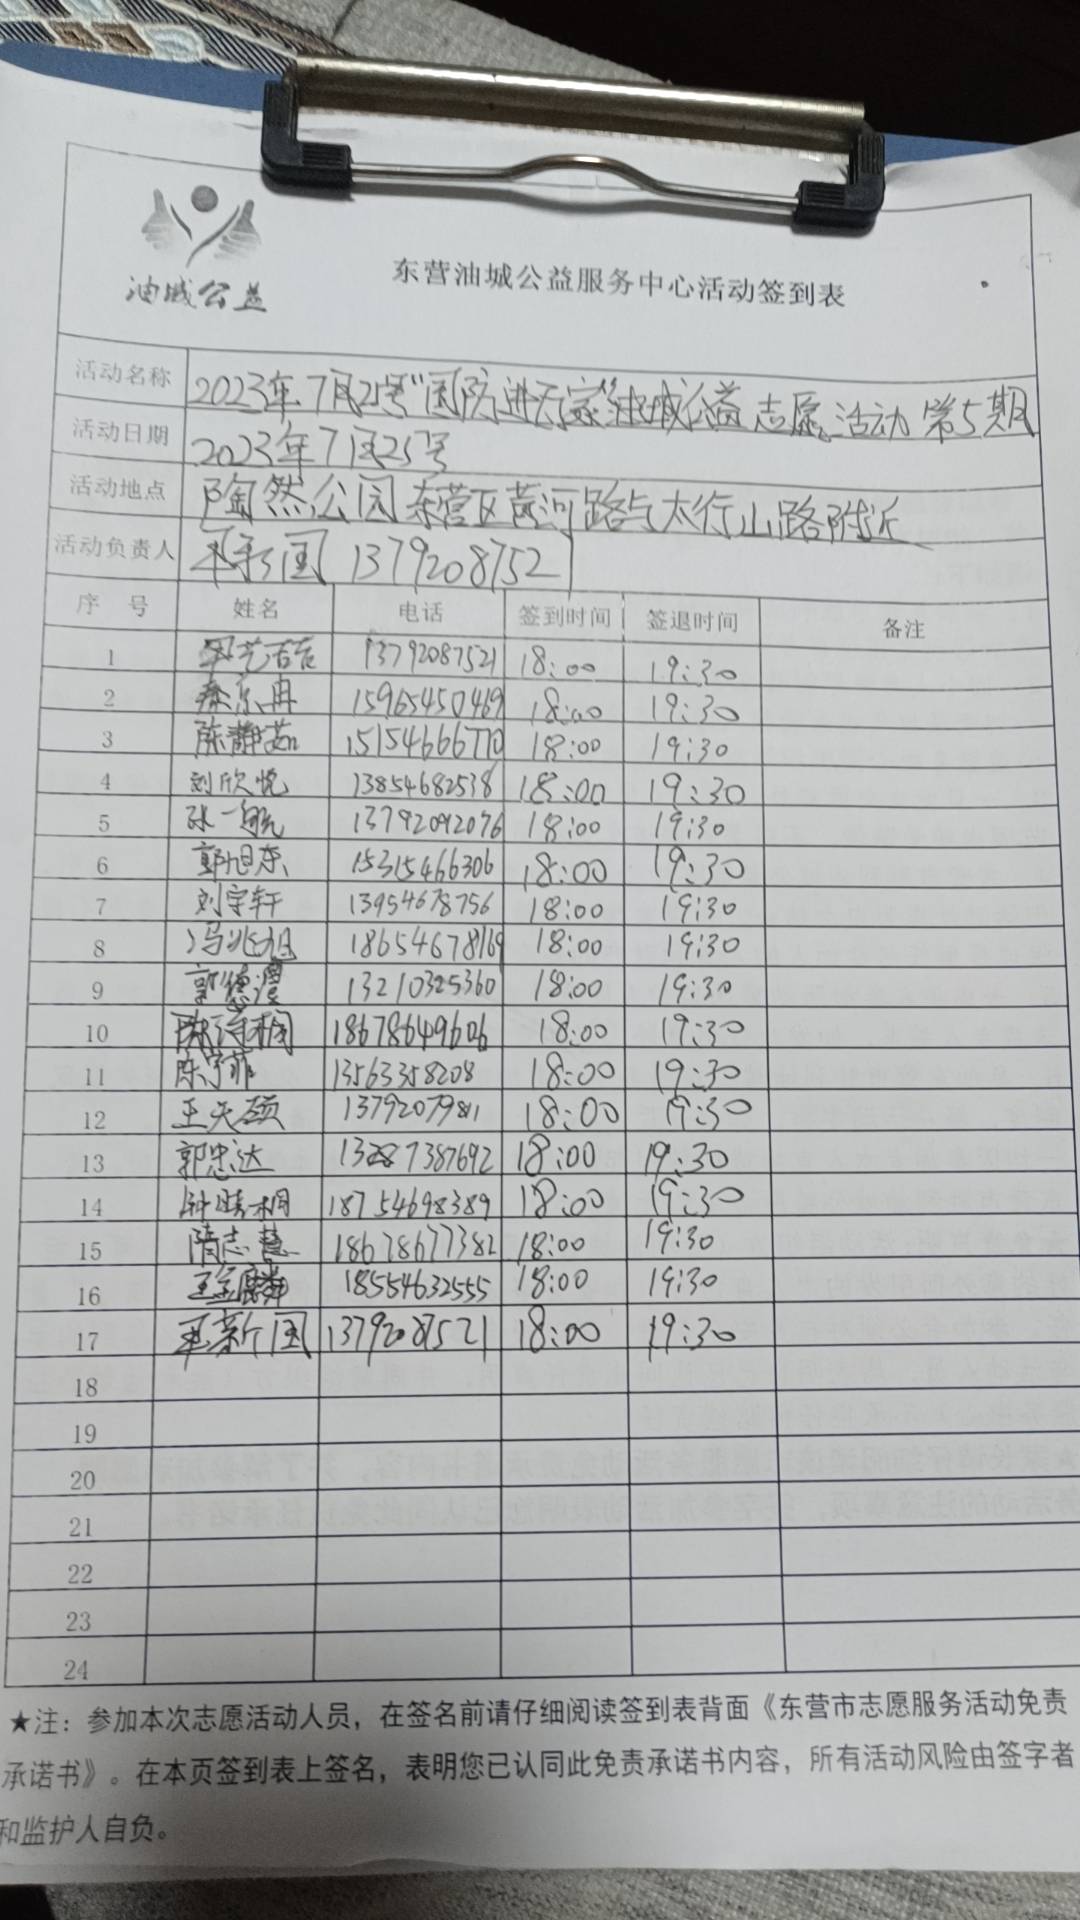 油城公益
东营油城公益服务中心活动签到表
活动名称 2023年7月25号"国防进万家"油城公益志愿活动 第5期
活动日期 2023年7月25号
活动地点 陶然公园 东营区黄河路与太行山路附近
活动负责人 新国 1379208752
序 号 姓名 电话 签到时间 签退时间 备注
1 13792087521 18:00 19:30
2 秦京冉 15965450469 18:00 19:30
3 陈静茹 15154666770 18:00 19:30
4 刘欣悦 13854682538 18:00 19:30
5 张一航 13792092076 18:00 19:30
6 郭旭东 15315466306 18:00 19:30
7 刘宇轩 13954678756 18:00 19:30
8 冯兆旭 18654678169 18:00 19:30
9 郭德潭 13210325360 18:00 19:30
10 18678649606 18:00 19:30
11 陈宇菲 13563358208 18:00 19:30
12 王天硕 13792079811 18:00 19:30
13 郭忠达 7387692 18:00 19:30
14 钟晴桐 18754698389 18:00 19:30
15 隋志慧 18678677382 18:00 19:30
16 18554632555 18:00 19:30
17 新国 13792087521 18:00 19:30
18
19
20
21
22
23
24
★注：参加本次志愿活动人员，在签名前请仔细阅读签到表背面《东营市志愿服务活动免责
承诺书》。在本页签到表上签名，表明您已认同此免责承诺书内容，所有活动风险由签字者
和监护人自负。